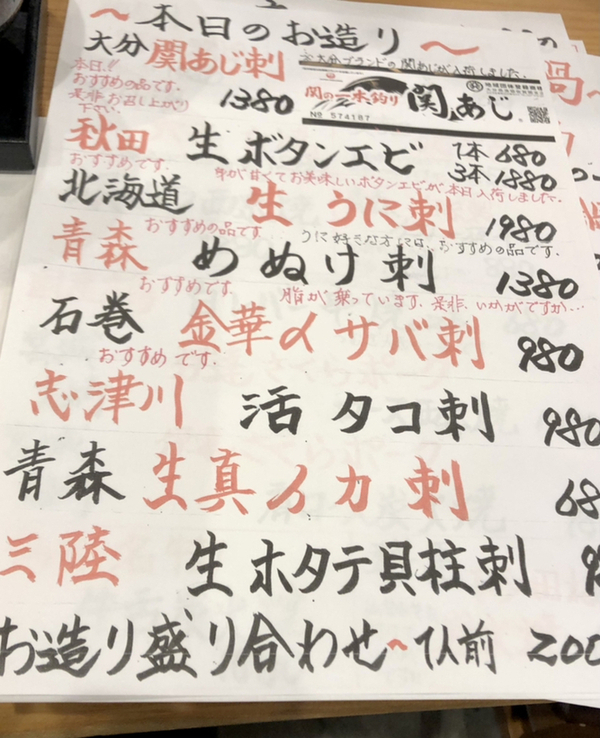 〜本日のお造り〜
大分 関あじ刺 1380
本日!!
おすすめの品です。
是非お召し上がり
下さい。
大分ブランドの関あじが入荷しました。
関の一本釣り 関あじ
№ 574187
秋田 生ボタンエビ 1本 680
3本 1880
おすすめです。
身が甘くてお美味しいボタンエビが本日入荷しました。
北海道 生うに刺 1980
おすすめの品です。
うに好きな方には、おすすめの品です。
青森 めぬけ刺 1380
おすすめです。
脂が乗っています。是非、いかがですか…
石巻 金華〆サバ刺 980
おすすめです。
志津川 活タコ刺 980
青森 生真イカ刺 68
三陸 生ホタテ貝柱刺 9
お造り盛り合わせ〜1人前 200